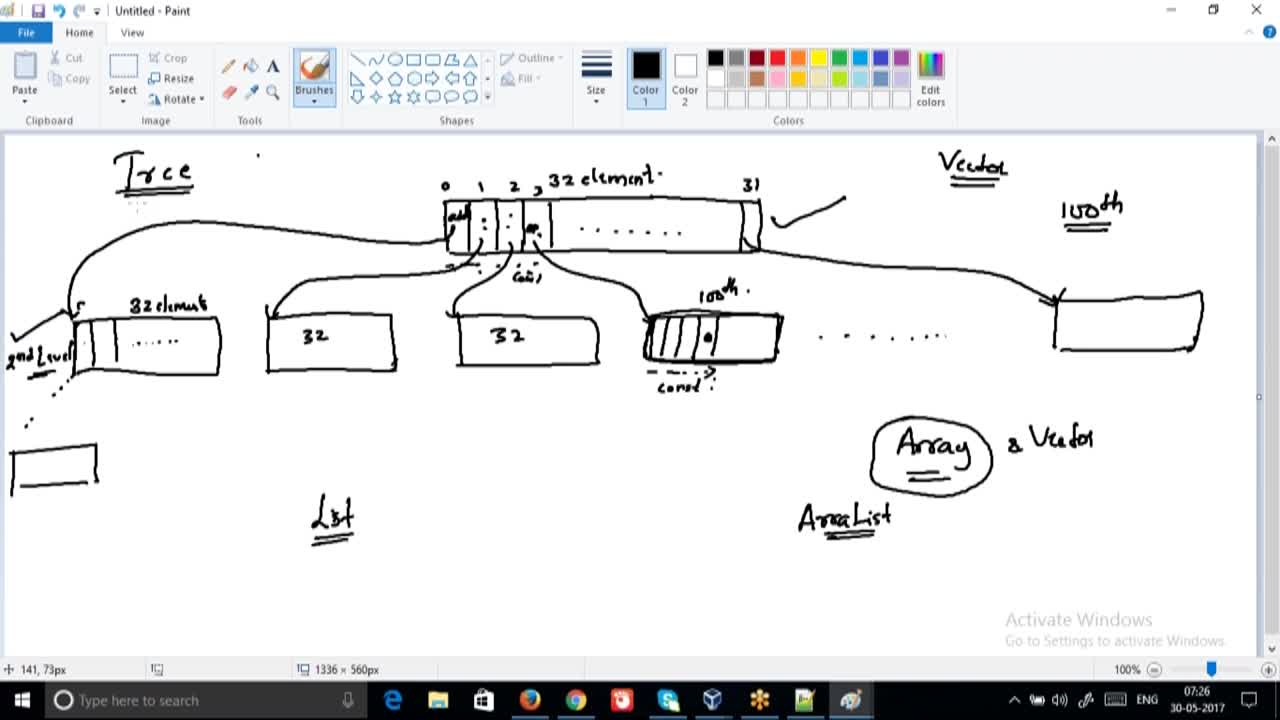 Untitled - Paint
File Home View
Paste
Cut
Copy
Clipboard
Select
Crop
Resize
Rotate
Image
Tools
Brushes
Shapes
Outline
Fill
Size
Color 1
Color 2
Colors
Edit colors
Tree
32 element
Vector
0 1 2 3 31
100th
32 element
100th
2nd Level
32
32
const
Array & Vector
List
ArraList
Activate Windows
Go to Settings to activate Windows.
141, 73px
1336 × 560px
100%
Type here to search
ENG
07:26
30-05-2017